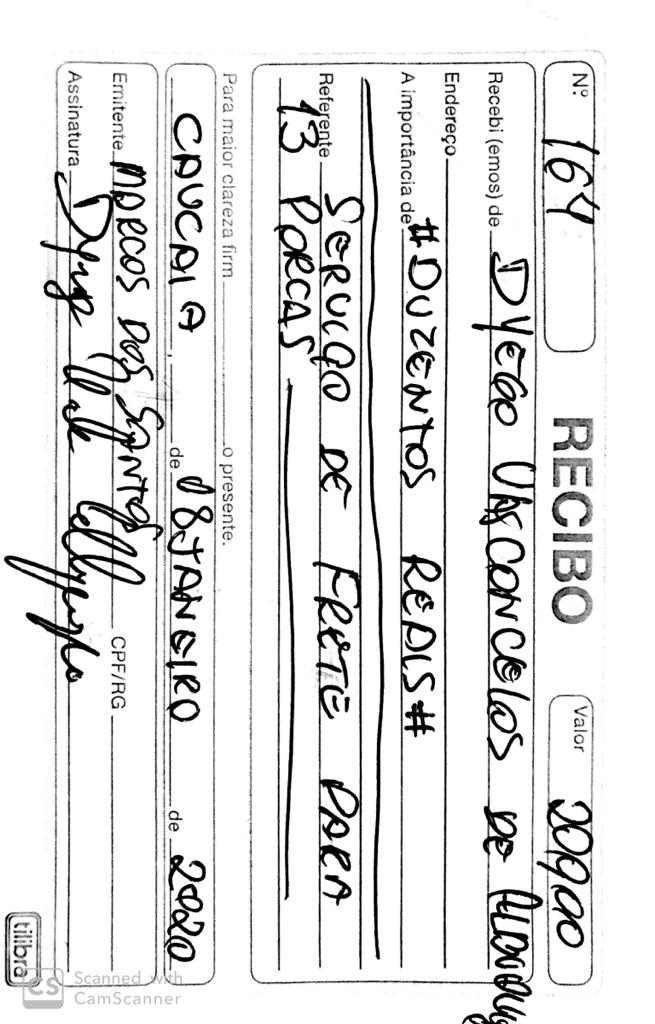 Nº 164 RECIBO Valor 200,00
Recebi (emos) de DYEGO VASCONCELOS DE
Endereço
A importância de #DUZENTOS REAIS#
Referente SERVIÇO DE FRETE PARA
13 PORCAS
Para maior clareza firm o presente.
CAUCAIA, de 18 JANEIRO de 2020
Emitente MARCOS DOS SANTOS CPF/RG
Assinatura
tilibra
CS Scanned with
CamScanner